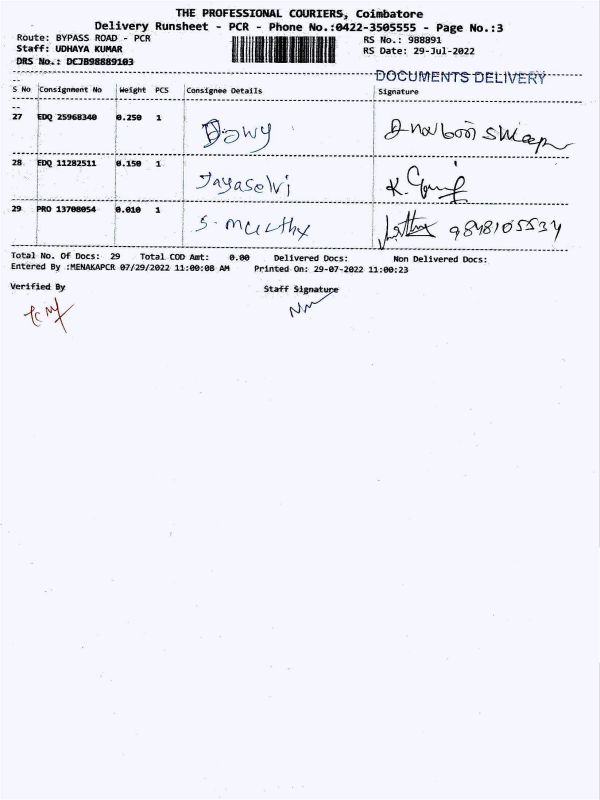 THE PROFESSIONAL COURIERS, Coimbatore
Delivery Runsheet - PCR - Phone No.:0422-3505555 - Page No.:3
Route: BYPASS ROAD - PCR RS No.: 988891
Staff: UDHAYA KUMAR RS Date: 29-Jul-2022
DRS No.: DCJB98889103
DOCUMENTS DELIVERY
S No Consignment No Weight PCS Consignee Details Signature
27 EDQ 25968340 0.250 1
28 EDQ 11282511 0.150 1 Jayaselvi
29 PRO 13708054 0.010 1 9848105534
Total No. Of Docs: 29 Total COD Amt: 0.00 Delivered Docs: Non Delivered Docs:
Entered By :MENAKAPCR 07/29/2022 11:00:08 AM Printed On: 29-07-2022 11:00:23
Verified By Staff Signature